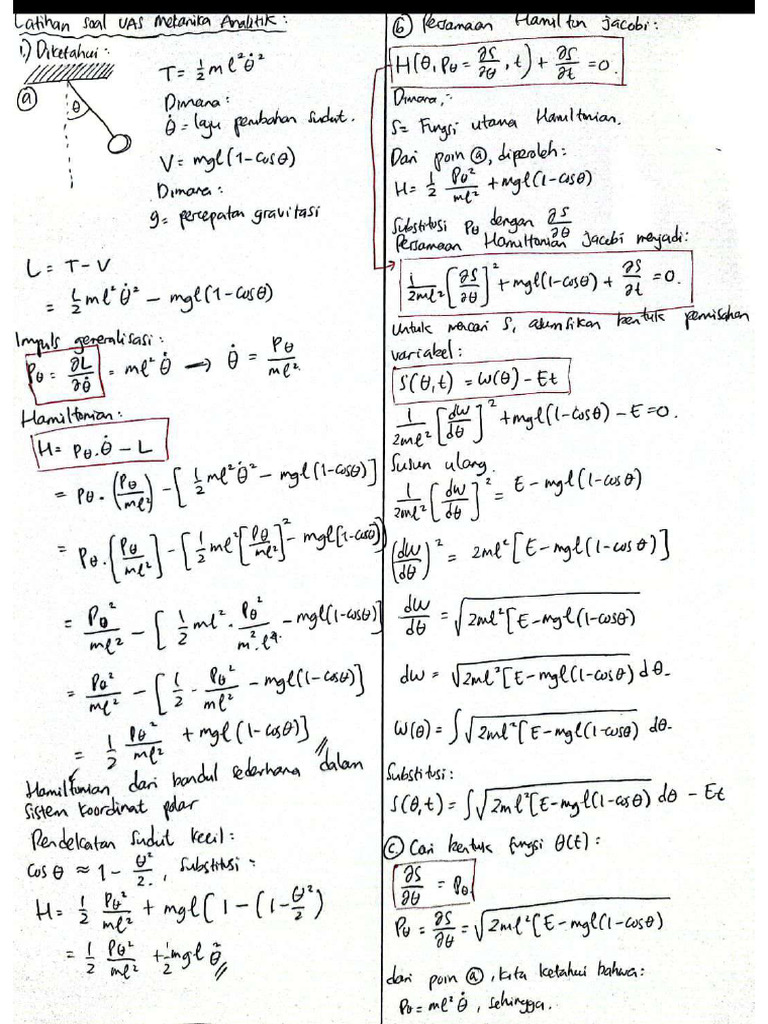 Latihan soal UAS Mekanika Analitik :
1.) Diketahui :
ⓐ
θ
T = 1/2 mℓ² θ̇²
Dimana :
θ̇ = laju perubahan sudut.
V = mgℓ(1-cosθ)
Dimana :
g = percepatan gravitasi
L = T - V
= 1/2 mℓ² θ̇² - mgℓ(1-cosθ)
Impuls generalisasi :
Pθ = ∂L/∂θ̇ = mℓ² θ̇ → θ̇ = Pθ/mℓ²
Hamiltonian :
H = Pθ.θ̇ - L
= Pθ . (Pθ/mℓ²) - [1/2 mℓ² θ̇² - mgℓ(1-cosθ)]
= Pθ . [Pθ/mℓ²] - [1/2 mℓ² [Pθ/mℓ²]² - mgℓ(1-cosθ)]
= Pθ²/mℓ² - [1/2 mℓ² . Pθ²/m².ℓ⁴ - mgℓ(1-cosθ)]
= Pθ²/mℓ² - [1/2 . Pθ²/mℓ² - mgℓ(1-cosθ)]
= 1/2 Pθ²/mℓ² + mgℓ(1-cosθ)] //
Hamiltonian dari bandul sederhana dalam
sistem koordinat polar
Pendekatan sudut kecil :
cos θ ≈ 1 - θ²/2. , substitusi :
H = 1/2 Pθ²/mℓ² + mgℓ[1 - (1-θ²/2)
= 1/2 Pθ²/mℓ² + 1/2 mgℓ θ² //
ⓑ Persamaan Hamilton jacobi :
H(θ, Pθ = ∂S/∂θ, t) + ∂S/∂t = 0.
Dimana, :
S = Fungsi utama Hamiltonian.
Dari poin ⓐ, diperoleh :
H = 1/2 Pθ²/mℓ² + mgℓ(1-cosθ)
Substitusi Pθ dengan ∂S/∂θ
Persamaan Hamiltonian Jacobi menjadi :
1/2mℓ² [∂S/∂θ]² + mgℓ(1-cosθ) + ∂S/∂t = 0.
Untuk mencari S, asumsikan bentuk pemisahan
variabel :
S(θ,t) = W(θ) - Et
1/2mℓ² [dW/dθ]² + mgℓ(1-cosθ) - E = 0.
Susun ulang.
1/2mℓ² [dW/dθ]² = E - mgℓ(1-cosθ)
(dW/dθ)² = 2mℓ² [E - mgℓ(1-cosθ)]
dW/dθ = √2mℓ² [E - mgℓ(1-cosθ)
dW = √2mℓ² [E - mgℓ(1-cosθ) dθ.
W(θ) = ∫√2mℓ² [E - mgℓ(1-cosθ) dθ.
Substitusi :
S(θ,t) = ∫√2mℓ² [E - mgℓ(1-cosθ) dθ - Et
ⓒ Cari bentuk fungsi θ(t) :
∂S/∂θ = Pθ
Pθ = ∂S/∂θ = √2mℓ² [E - mgℓ(1-cosθ)
dari poin ⓐ, kita ketahui bahwa :
Pθ = mℓ² θ̇ , sehingga.